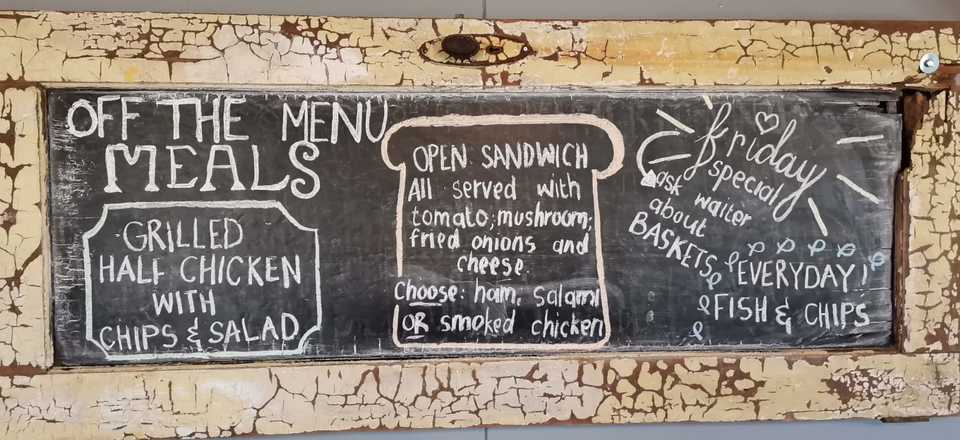 OFF THE MENU
MEALS
GRILLED
HALF CHICKEN
WITH
CHIPS & SALAD
OPEN SANDWICH
All served with
tomato; mushroom;
fried onions and
cheese.
Choose: ham, salami
OR smoked chicken
friday
special
ask waiter
about
BASKETS
EVERYDAY!
FISH & CHIPS